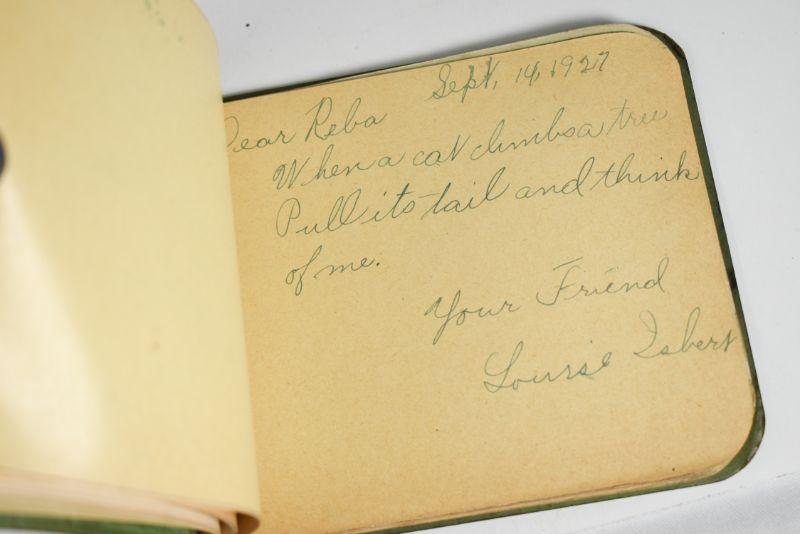 Sept. 14, 1927
Dear Reba
When a cat climbs a tree
Pull its tail and think
of me.
Your Friend
Louise Isbert